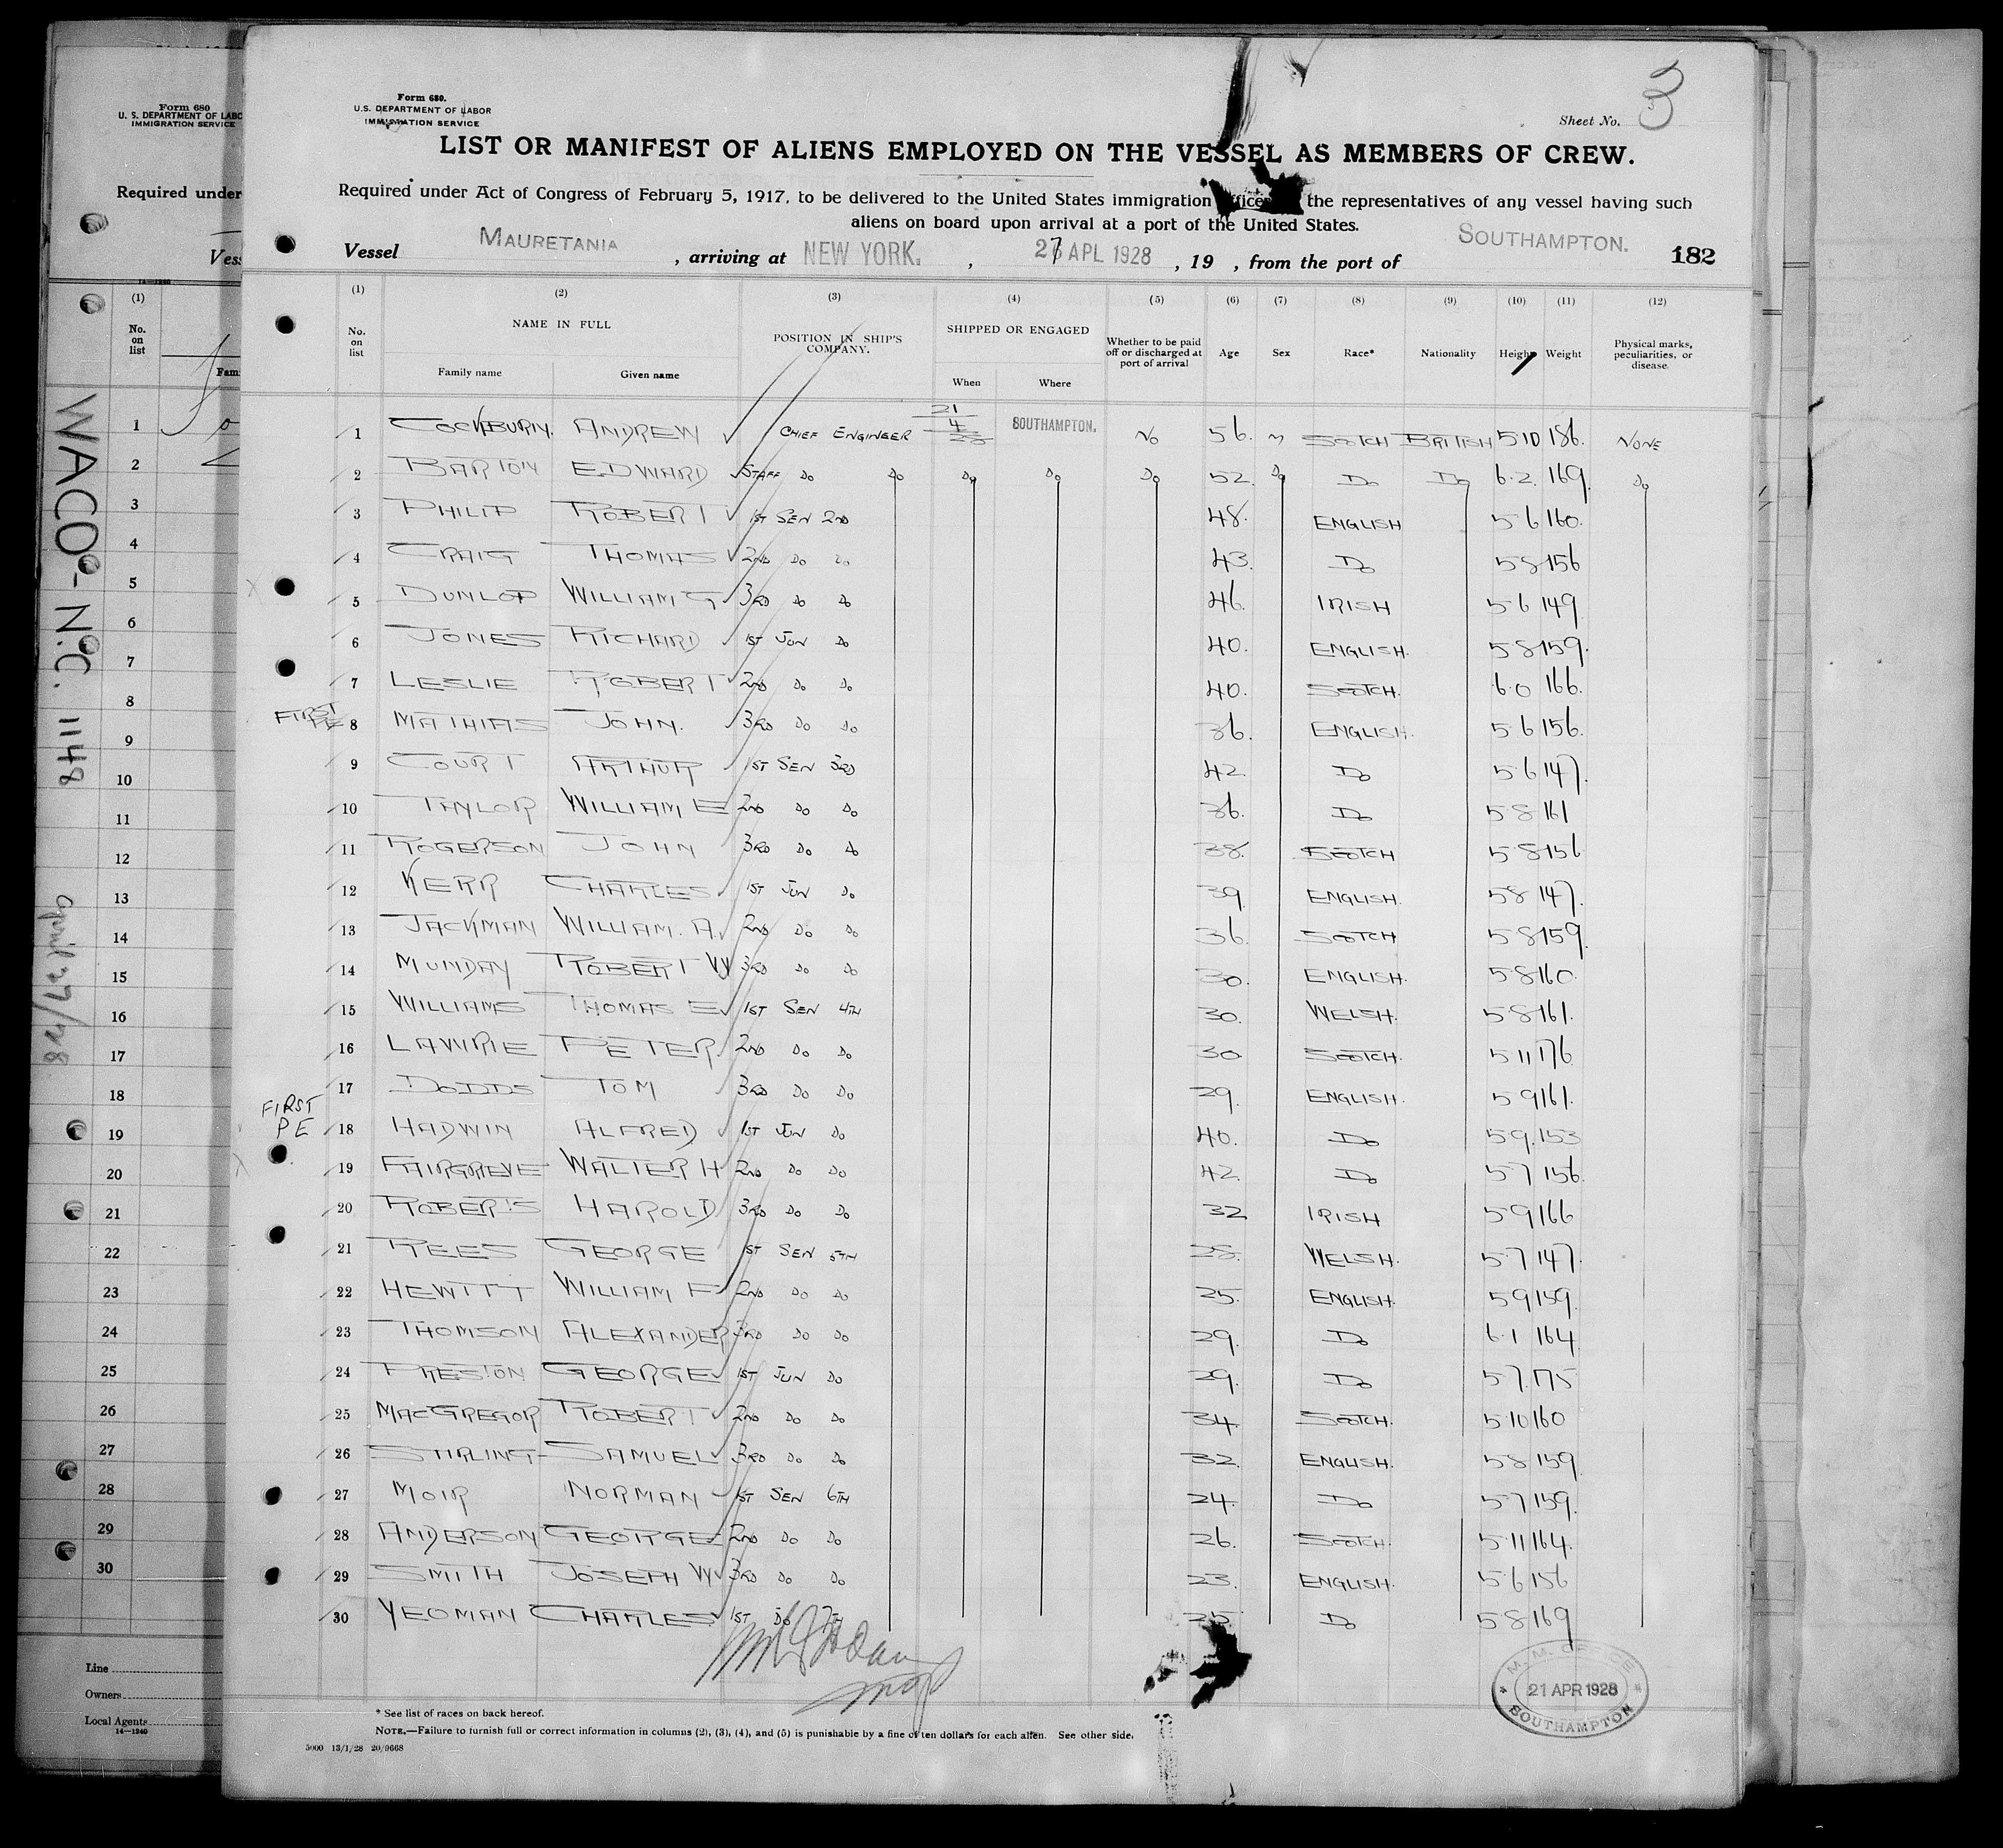 Form 680
U. S. DEPARTMENT OF LABO
IMMIGRATION SERVICE
Required under
Ves
(1)
No.
on
list
Fam
WACO - N.C. 1148
April 27/28
1
2
3
4
5
6
7
8
9
10
11
12
13
14
15
16
17
18
19
20
21
22
23
24
25
26
27
28
29
30
Line
Owners
Local Agents
14-1240
Form 680.
U.S. DEPARTMENT OF LABOR
IMMIGRATION SERVICE
Sheet No. 3
LIST OR MANIFEST OF ALIENS EMPLOYED ON THE VESSEL AS MEMBERS OF CREW.
Required under Act of Congress of February 5, 1917, to be delivered to the United States immigration the representatives of any vessel having such
aliens on board upon arrival at a port of the United States.
Vessel MAURETANIA , arriving at NEW YORK. , 27 APL 1928 , 19 , from the port of SOUTHAMPTON. 182
(1) (2) (3) (4) (5) (6) (7) (8) (9) (10) (11) (12)
No. on list NAME IN FULL Family name Given name POSITION IN SHIP'S COMPANY. SHIPPED OR ENGAGED When Where Whether to be paid off or discharged at port of arrival Age Sex Race* Nationality Height Weight Physical marks, peculiarities, or disease.
1 COCKBURN. ANDREW CHIEF ENGINEER 21/4/28 SOUTHAMPTON. NO 56. M SCOTCH BRITISH 5 10 186. NONE
2 BARTON EDWARD STAFF DO DO DO DO DO 52. DO DO DO 6.2. 169. DO
3 PHILIP ROBERT 1ST SEN 2ND 48. ENGLISH 5 6 160.
4 CRAIG THOMAS 2ND DO DO 43. DO 5 8 156
5 DUNLOP WILLIAM G 3RD DO DO 46. IRISH 5 6 149
6 JONES RICHARD 1ST JUN DO 40. ENGLISH. 5 8 159.
7 LESLIE ROBERT 2ND DO DO 40. SCOTCH. 6.0 166.
FIRST PE 8 MATHIAS JOHN. 3RD DO DO 36. ENGLISH. 5 6 156.
9 COURT ARTHUR 1ST SEN 3RD 42. DO 5 6 147.
10 TAYLOR WILLIAM E 2ND DO DO 36. DO 5 8 161
11 ROGERSON JOHN 3RD DO DO 38. SCOTCH 5 8 156
12 KERR CHARLES 1ST JUN DO 39. ENGLISH. 5 8 147.
13 JACKMAN WILLIAM. A. 2ND DO DO 36. SCOTCH 5 8 159.
14 MUNDAY ROBERT W 3RD DO DO 30. ENGLISH. 5 8 160.
15 WILLIAMS THOMAS E 1ST SEN 4TH 30. WELSH. 5 8 161.
16 LAWRIE PETER 2ND DO DO 30 SCOTCH. 5 11 176
17 DODDS TOM 3RD DO DO 29. ENGLISH. 5 9 161.
FIRST PE 18 HADWIN ALFRED 1ST JUN DO 40. DO 5 9. 153
19 FAIRGRIEVE WALTER H 2ND DO DO 42. DO 5 7 156
20 ROBERTS HAROLD 3RD DO DO 32 IRISH 5 9 166
21 REES GEORGE 1ST SEN 5TH 28. WELSH. 5 7 147.
22 HEWITT WILLIAM F 2ND DO DO 25. ENGLISH. 5 9 159
23 THOMSON ALEXANDER 3RD DO DO 29. DO 6.1 164
24 PRESTON GEORGE 1ST JUN DO 29. DO 5 7. 175
25 MACGREGOR ROBERT 2ND DO DO 34. SCOTCH. 5 10 160
26 STIRLING SAMUEL 3RD DO DO 32. ENGLISH. 5 8 159
27 MOIR NORMAN 1ST SEN 6TH 24. DO 5 7 159.
28 ANDERSON GEORGE 2ND DO DO 26. SCOTCH. 5 11 164.
29 SMITH JOSEPH W 3RD DO DO 23. ENGLISH. 5 6 156
30 YEOMAN CHARLES 1ST DO 7TH 25. DO 5 8 169
21 APR 1928
SOUTHAMPTON
* See list of races on back hereof.
NOTE.—Failure to furnish full or correct information in columns (2), (3), (4), and (5) is punishable by a fine of ten dollars for each alien. See other side.
5000 13/1/28 20/9668